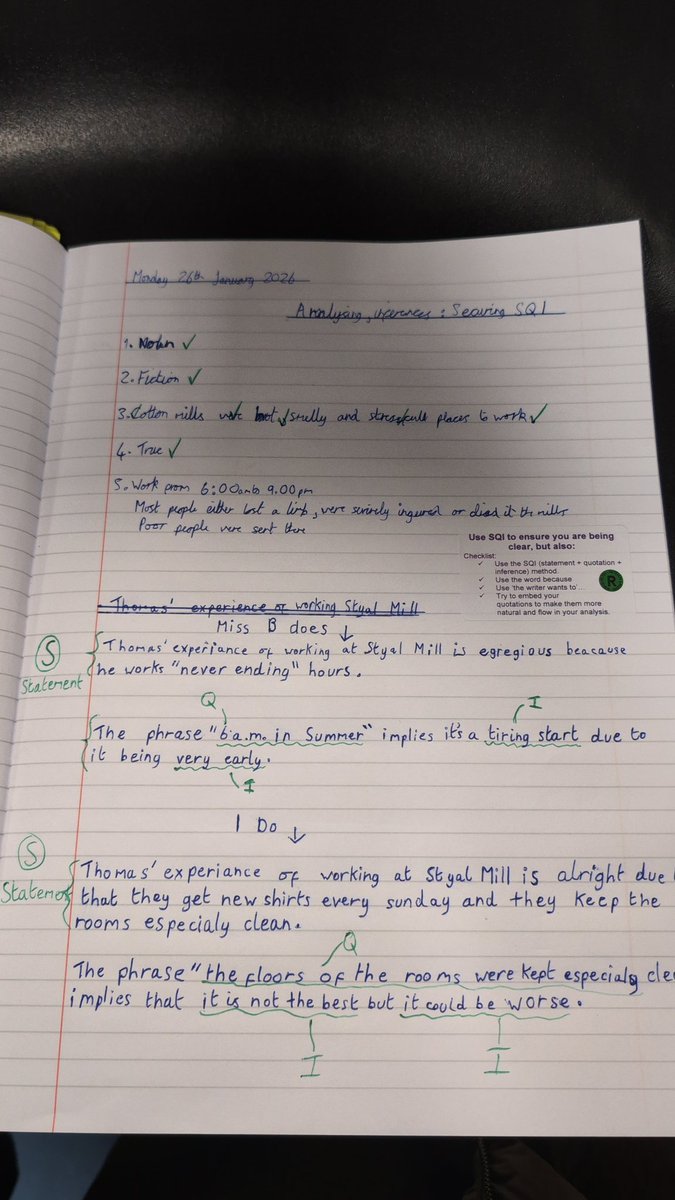 Monday 26th January 2026
Analysing inferences: Securing SQI
1. Noun ✓
2. Fiction ✓
3. Cotton mills were hot, smelly and places to work ✓
4. True ✓
5. Work from 6:00am to 9.00pm
Most people either lost a limb, were or died it the mills
Poor people were sent there
Use SQI to ensure you are being
clear, but also:
Checklist:
✓ Use the SQI (statement + quotation +
inference) method.
✓ Use the word because
✓ Use 'the writer wants to'...
✓ Try to embed your
quotations to make them more
natural and flow in your analysis.
R
- Thomas' experience of working Styal Mill
Miss B does ↓
S
Statement
Thomas' experiance of working at Styal Mill is egregious beacause
he works "never ending" hours.
Q
I
The phrase "6 a.m. in Summer" implies it's a tiring start due to
it being very early.
I
I Do ↓
S
Statement
Thomas' experiance of working at Styal Mill is alright due
that they get new shirts every sunday and they keep the
rooms especialy clean.
Q
The phrase "the floors of the rooms were kept especialy cle
implies that it is not the best but it could be worse.
I
I